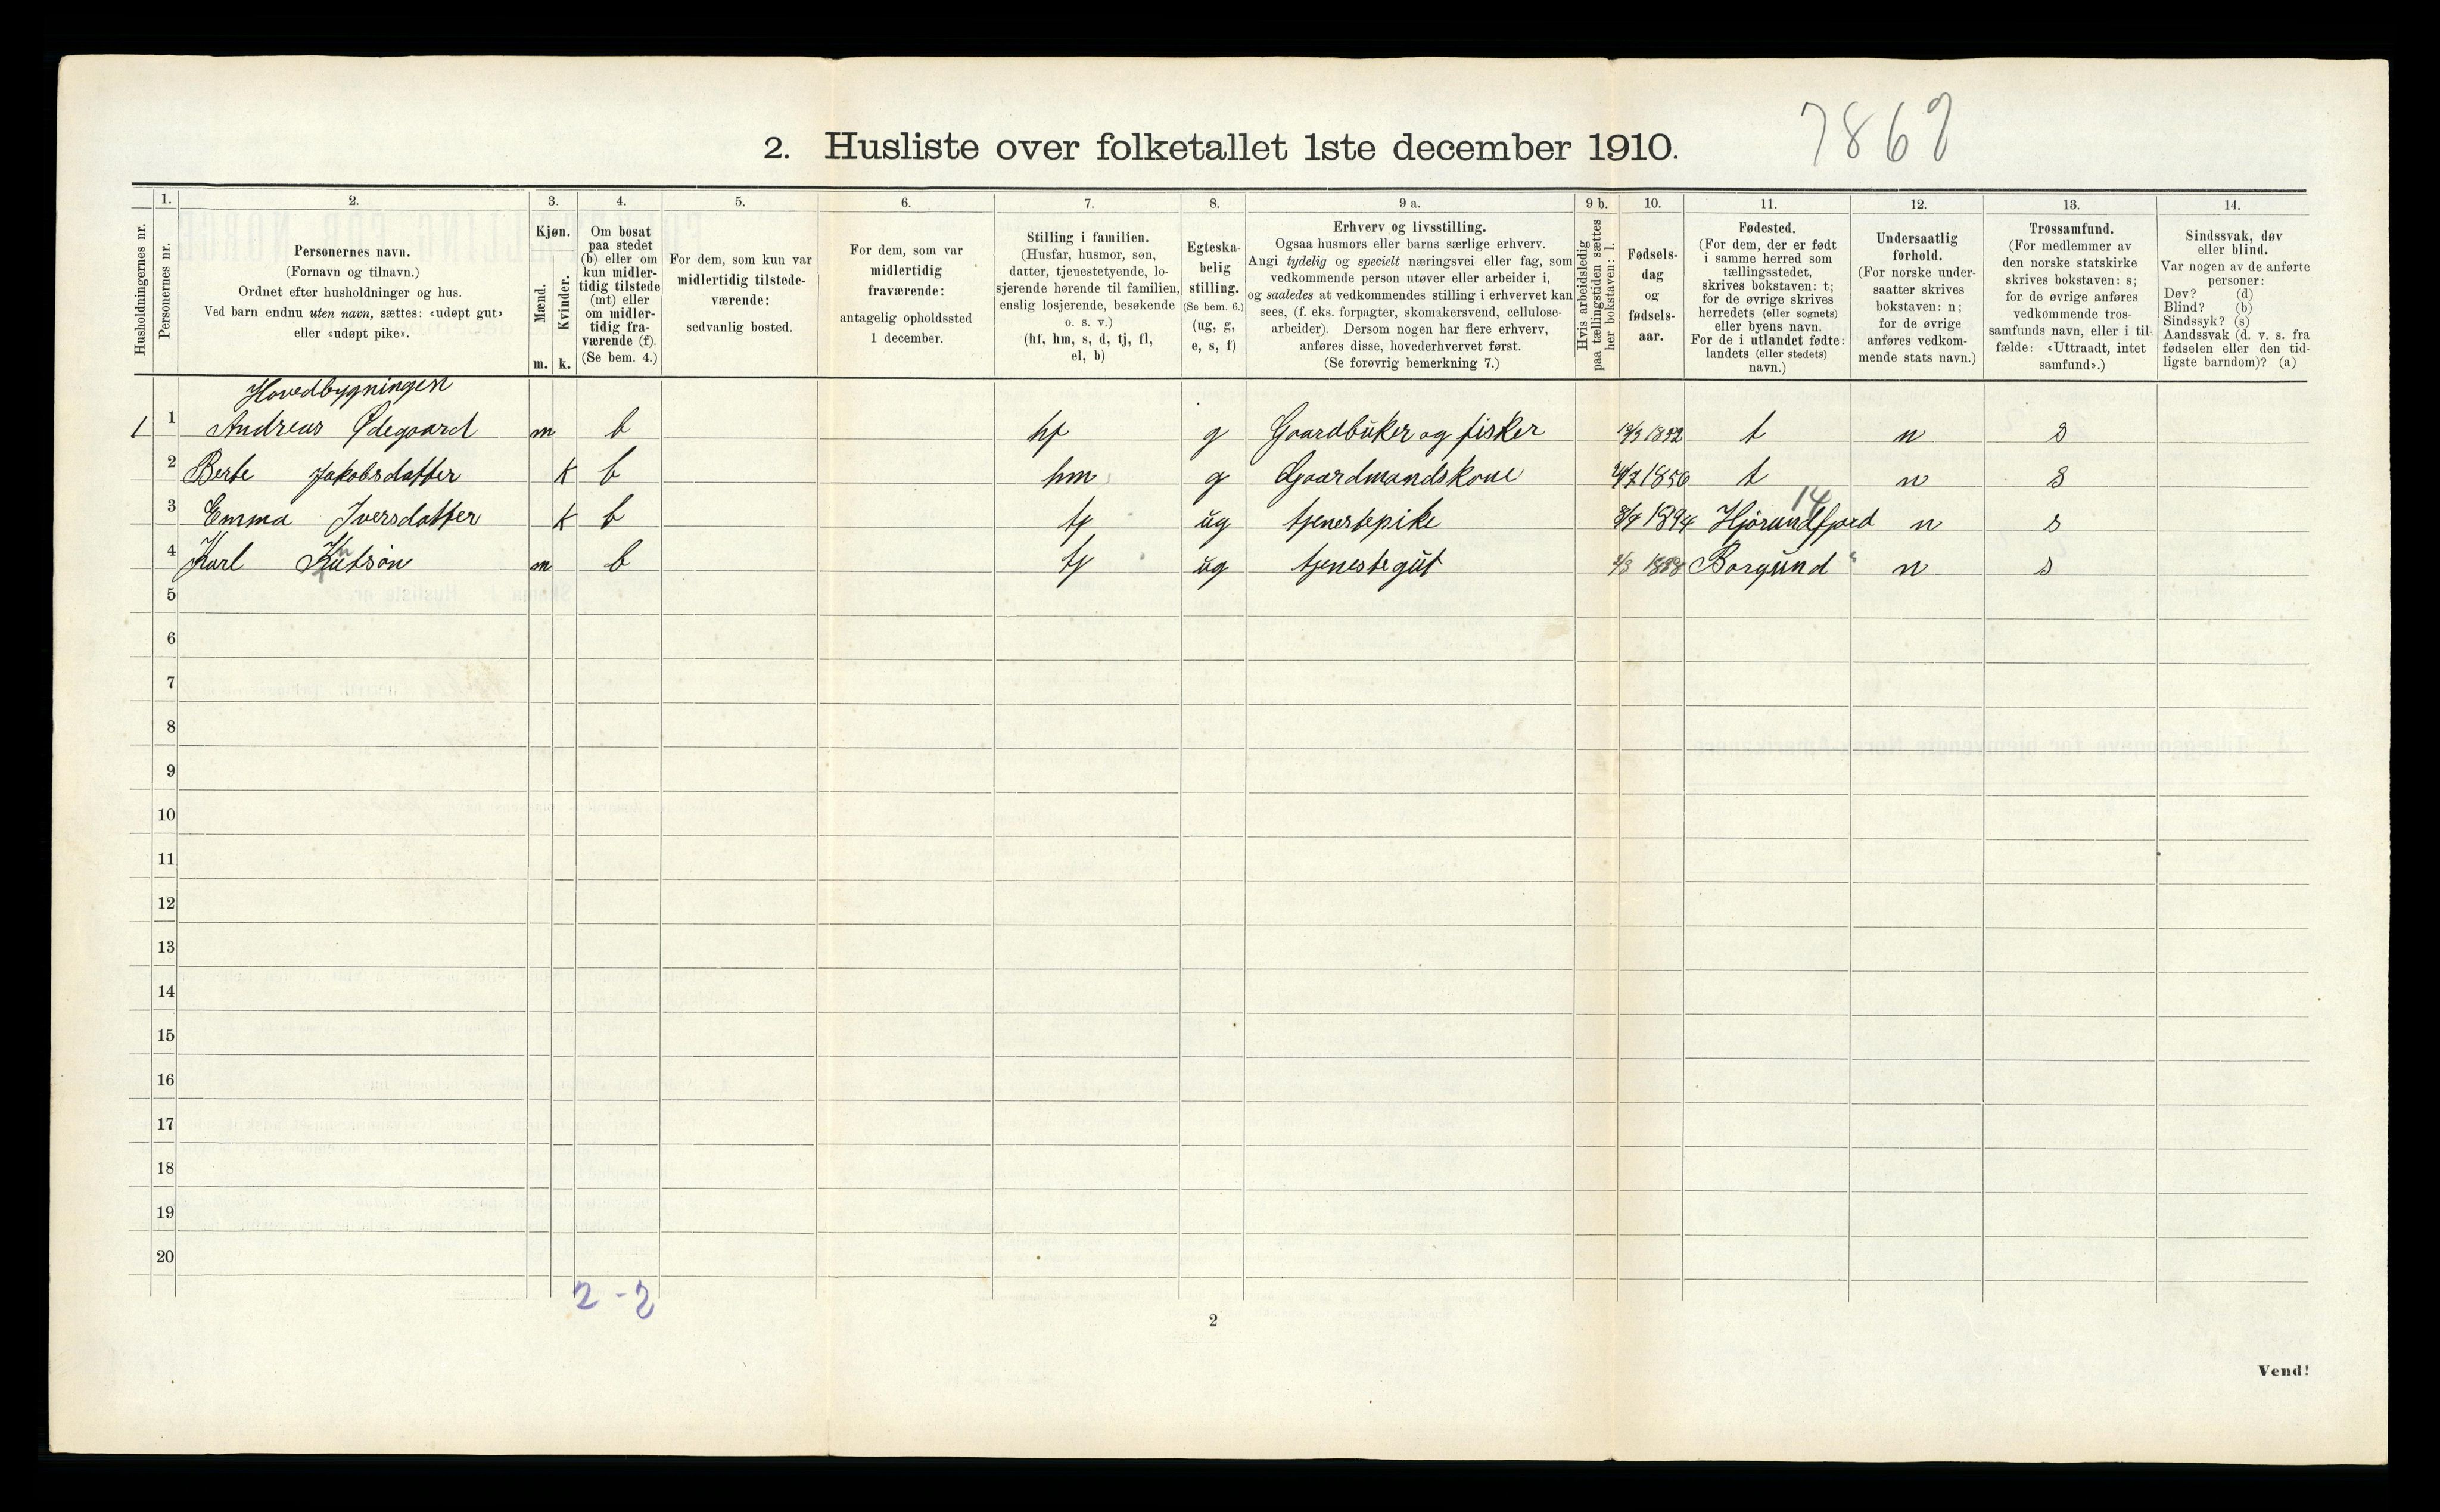 7869
2. Husliste over folketallet 1ste december 1910.
Husholdningernes nr.
1.
Personernes nr.
2.
Personernes navn.
(Fornavn og tilnavn.)
Ordnet efter husholdninger og hus.
Ved barn endnu uten navn, sættes: «udøpt gut»
eller «udøpt pike».
3.
Kjøn.
Mænd.
Kvinder.
m. k.
4.
Om bosat
paa stedet
(b) eller om
kun midler-
tidig tilstede
(mt) eller
om midler-
tidig fra-
værende (f).
(Se bem. 4.)
5.
For dem, som kun var
midlertidig tilstede-
værende:
sedvanlig bosted.
6.
For dem, som var
midlertidig
fraværende:
antagelig opholdssted
1 december.
7.
Stilling i familien.
(Husfar, husmor, søn,
datter, tjenestetyende, lo-
sjerende hørende til familien,
enslig losjerende, besøkende
o. s. v.)
(hf, hm, s, d, tj, fl,
el, b)
8.
Egteska-
belig
stilling.
(Se bem. 6.)
(ug, g,
e, s, f)
9 a.
Erhverv og livsstilling.
Ogsaa husmors eller barns særlige erhverv.
Angi tydelig og specielt næringsvei eller fag, som
vedkommende person utøver eller arbeider i,
og saaledes at vedkommendes stilling i erhvervet kan
sees, (f. eks. forpagter, skomakersvend, cellulose-
arbeider). Dersom nogen har flere erhverv,
anføres disse, hovederhvervet først.
(Se forøvrig bemerkning 7.)
9 b.
Hvis arbeidsledig
paa tællingstiden sættes
her bokstaven: l.
10.
Fødsels-
dag
og
fødsels-
aar.
11.
Fødested.
(For dem, der er født
i samme herred som
tællingsstedet,
skrives bokstaven: t;
for de øvrige skrives
herredets (eller sognets)
eller byens navn.
For de i utlandet fødte:
landets (eller stedets)
navn.)
12.
Undersaatlig
forhold.
(For norske under-
saatter skrives
bokstaven: n;
for de øvrige
anføres vedkom-
mende stats navn.)
13.
Trossamfund.
(For medlemmer av
den norske statskirke
skrives bokstaven: s;
for de øvrige anføres
vedkommende tros-
samfunds navn, eller i til-
fælde: «Uttraadt, intet
samfund».)
14.
Sindssvak, døv
eller blind.
Var nogen av de anførte
personer:
Døv? (d)
Blind? (b)
Sindssyk? (s)
Aandssvak (d. v. s. fra
fødselen eller den tid-
ligste barndom)? (a)
Hovedbygningen
1 1 Andreas Ødegaard m b hf g Gaardbruker og fisker t n s
2 Berte Jakobsdatter k b hm g Gaardmandskone 1856 t n s
14
3 Emma Iversdatter k b tj ug tjenestepike 1894 Hjørundfjord n s
4 Karl Knutsøn m b tj ug tjenestegut 1888 Borgund n s
5
6
7
8
9
10
11
12
13
14
15
16
17
18
19
20
2 - 2
2
Vend!